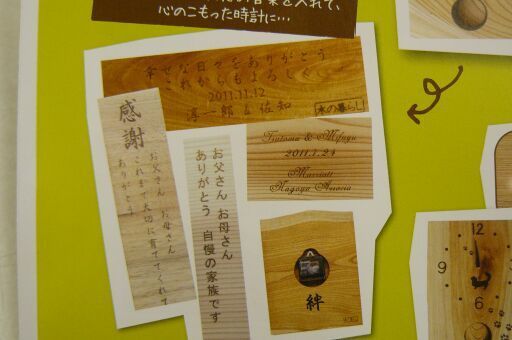 心のこもった時計に…
幸せな日々をありがとう
これからもよろしく
2011.11.12
淳一郎 & 佐知
木の暮らし
感謝
お父さん お母さん
これまで大切に育ててくれて
ありがとう
お父さん お母さん
ありがとう 自慢の家族です
2011.7.24
Marriott
Nagoya Associa
絆
12
9
6